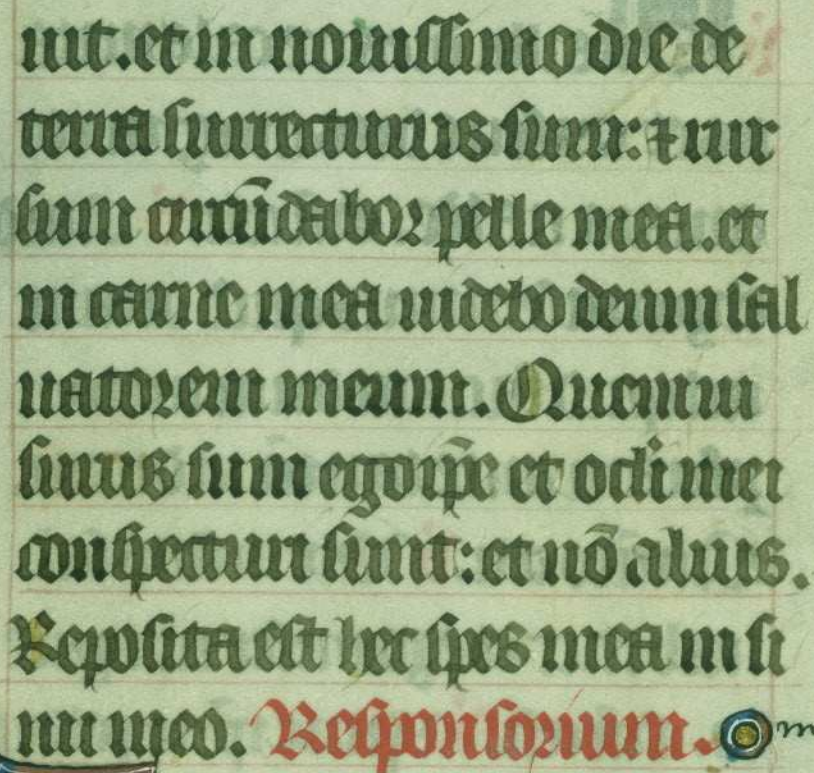 uit. et in nouissimo die de
terra surrecturus sum: ⁊ rur
sum circūdabor pelle mea. et
in carne mea uidebo deum sal
uatorem meum. Quem ui
surus sum ego ip̄e et oc̄li mei
conspecturi sunt: et nō alius.
Reposita est hec spes mea in si
nu meo. Responsorium.